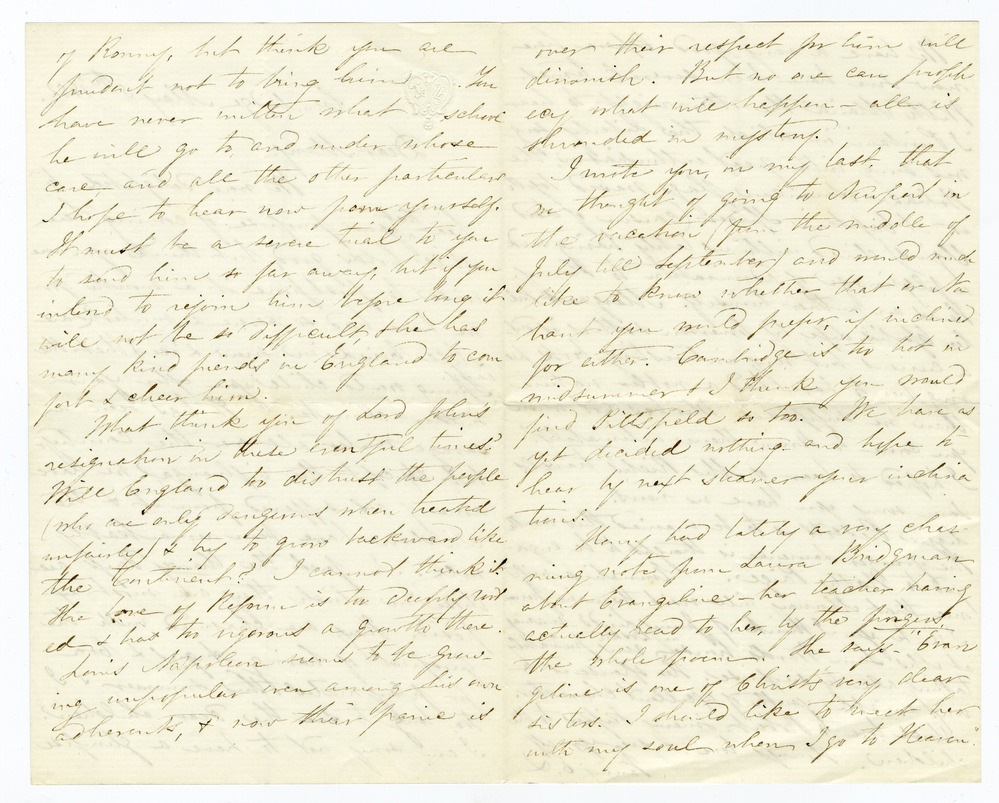 of Ronny, but think you are
prudent not to bring him. You
have never written what school
he will go to, and under whose
care and all the other particulars
I hope to hear now from yourself.
It must be a severe trial to you
to send him so far away, but if you
intend to rejoin him before long it
will not be so difficult, & he has
many kind friends in England to com
fort & cheer him.
What think you of Lord John's
resignation in these eventful times?
Will England too distrust the people
(who are only dangerous when treated
unfairly) & try to grow backward like
the Continent? I cannot think it.
The love of Reform is too deeply root
ed & has too vigorous a growth there.
Louis Napoleon seems to be grow-
ing unpopular even among his own
adherents, & now their panic is
over their respect for him will
diminish. But no one can proph
ecy what will happen – all is
shrouded in mystery.
I wrote you, in my last, that
we thought of going to Newport in
the vacation (from the middle of
July till September) and would much
like to know whether that or Na
hant you would prefer, if inclined
for either. Cambridge is too hot in
midsummer & I think you would
find Pittsfield so too. We have as
yet decided nothing and hope to
hear by next steamer your inclina
tions.
Henry had lately a very char
ming note from Laura Bridgman
about Evangeline – her teacher having
actually read to her, by the fingers,
the whole poem. She says – "Evan
geline is one of Christ's very dear
sisters. I should like to meet her
with my soul when I go to Heaven".